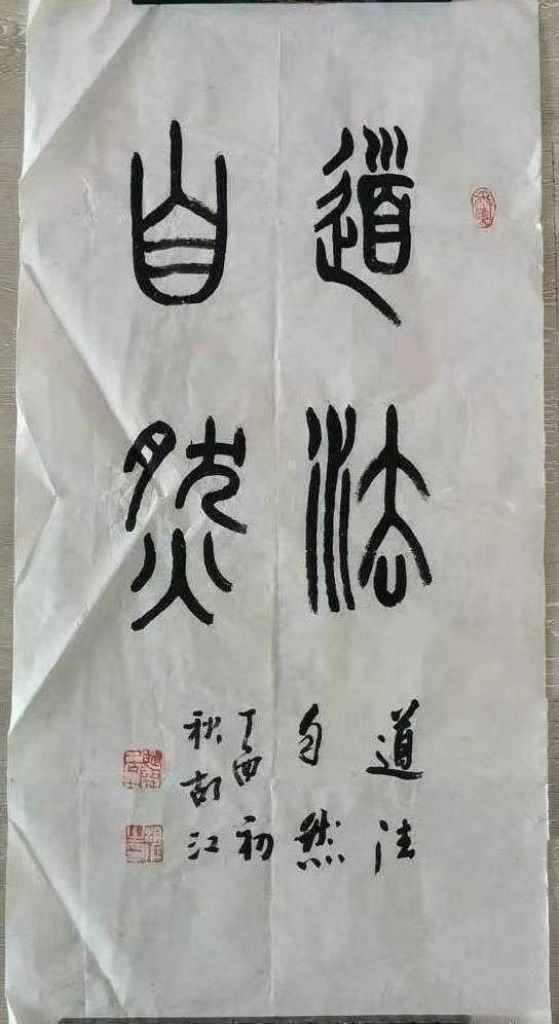 道法
自然
道法
自然
丁酉初
秋胡江